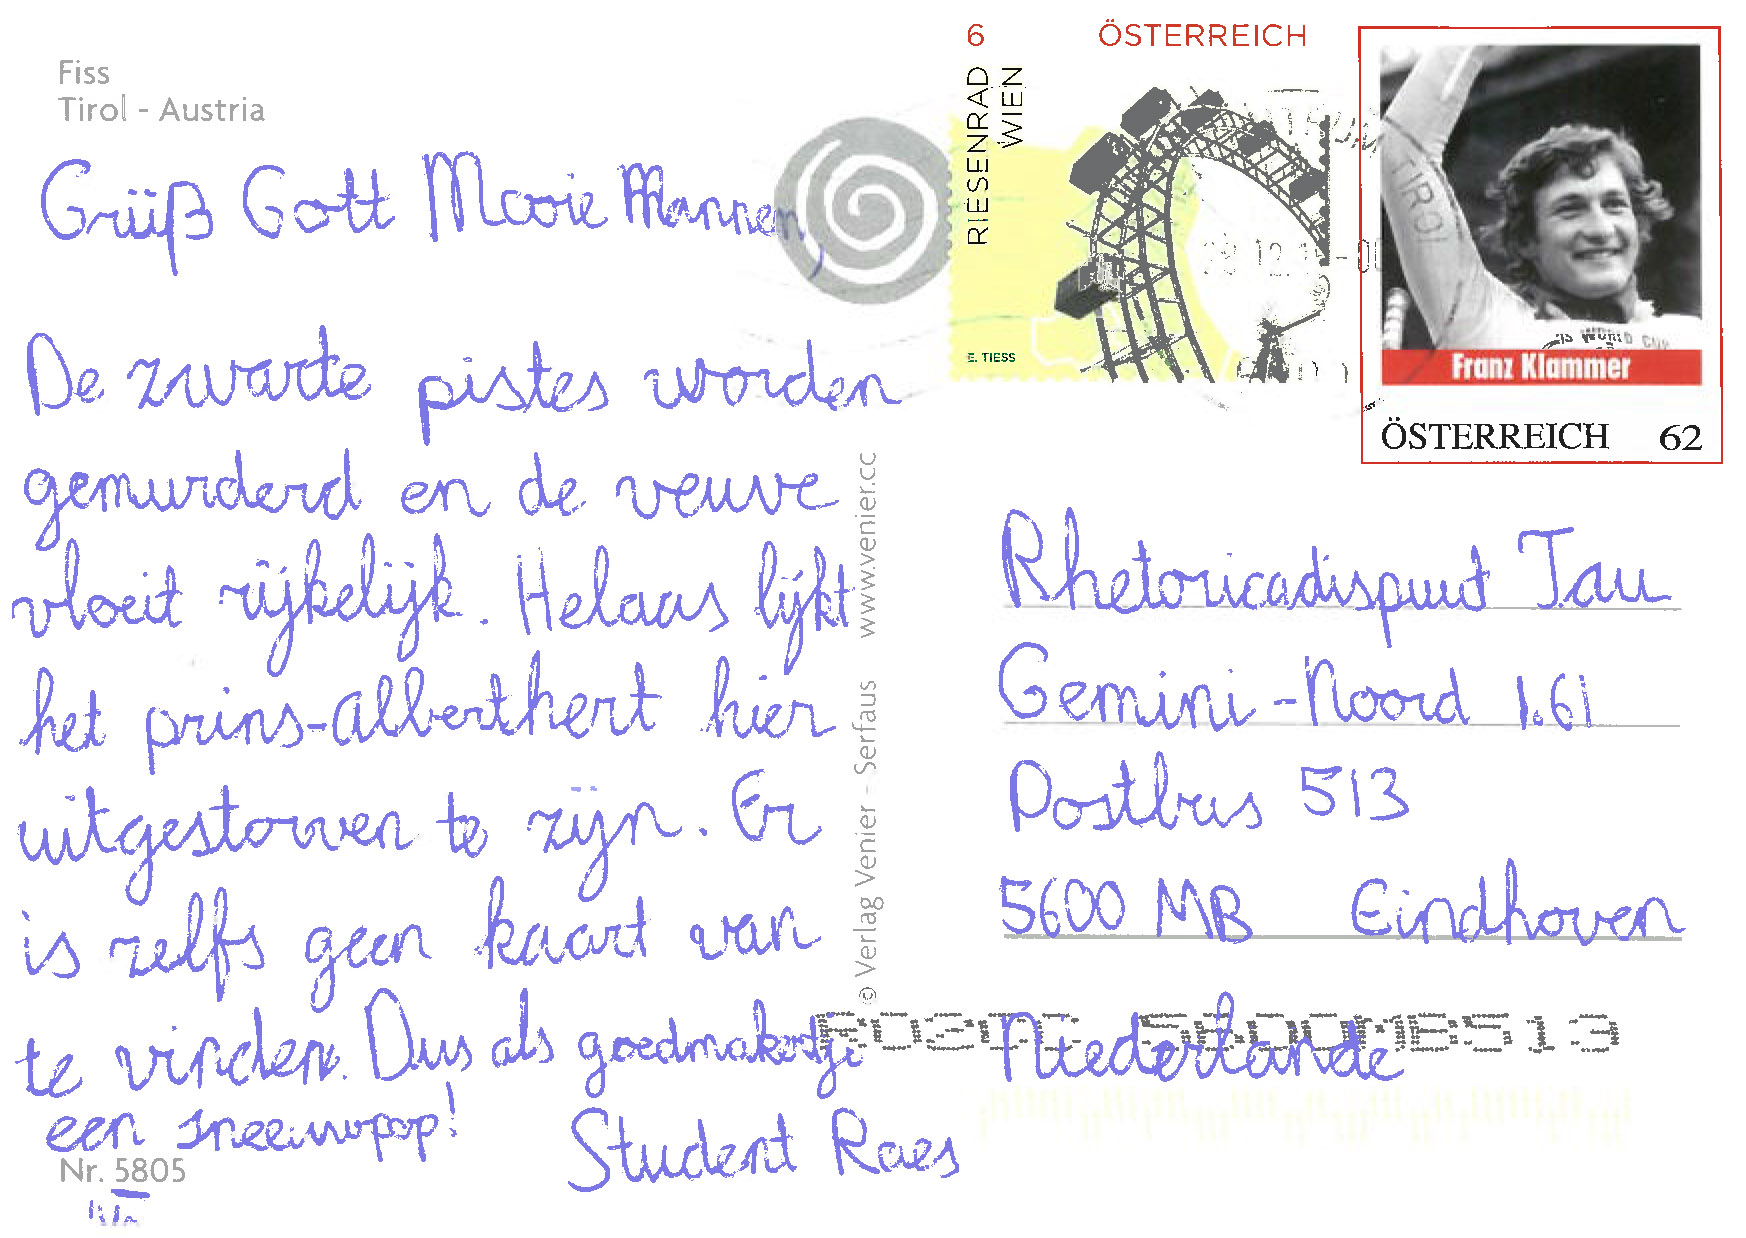 Fiss
Tirol - Austria
Grüß Gott Mooie Mannen,
De zwarte pistes worden
gemurderd en de veuve
vloeit rijkelijk. Helaas lijkt
het prins-alberthert hier
uitgestorven te zijn. Er
is zelfs geen kaart van
te vinden. Dus als goedmakertje
een sneeuwpop!
Student Raes
Nr. 5805
© Verlag Venier - Serfaus www.venier.cc
6 ÖSTERREICH
RIESENRAD
WIEN
E. TIESS
Franz Klammer
ÖSTERREICH 62
Rhetoricadispuut Tau
Gemini-Noord 1.61
Postbus 513
5600 MB Eindhoven
Niederlande